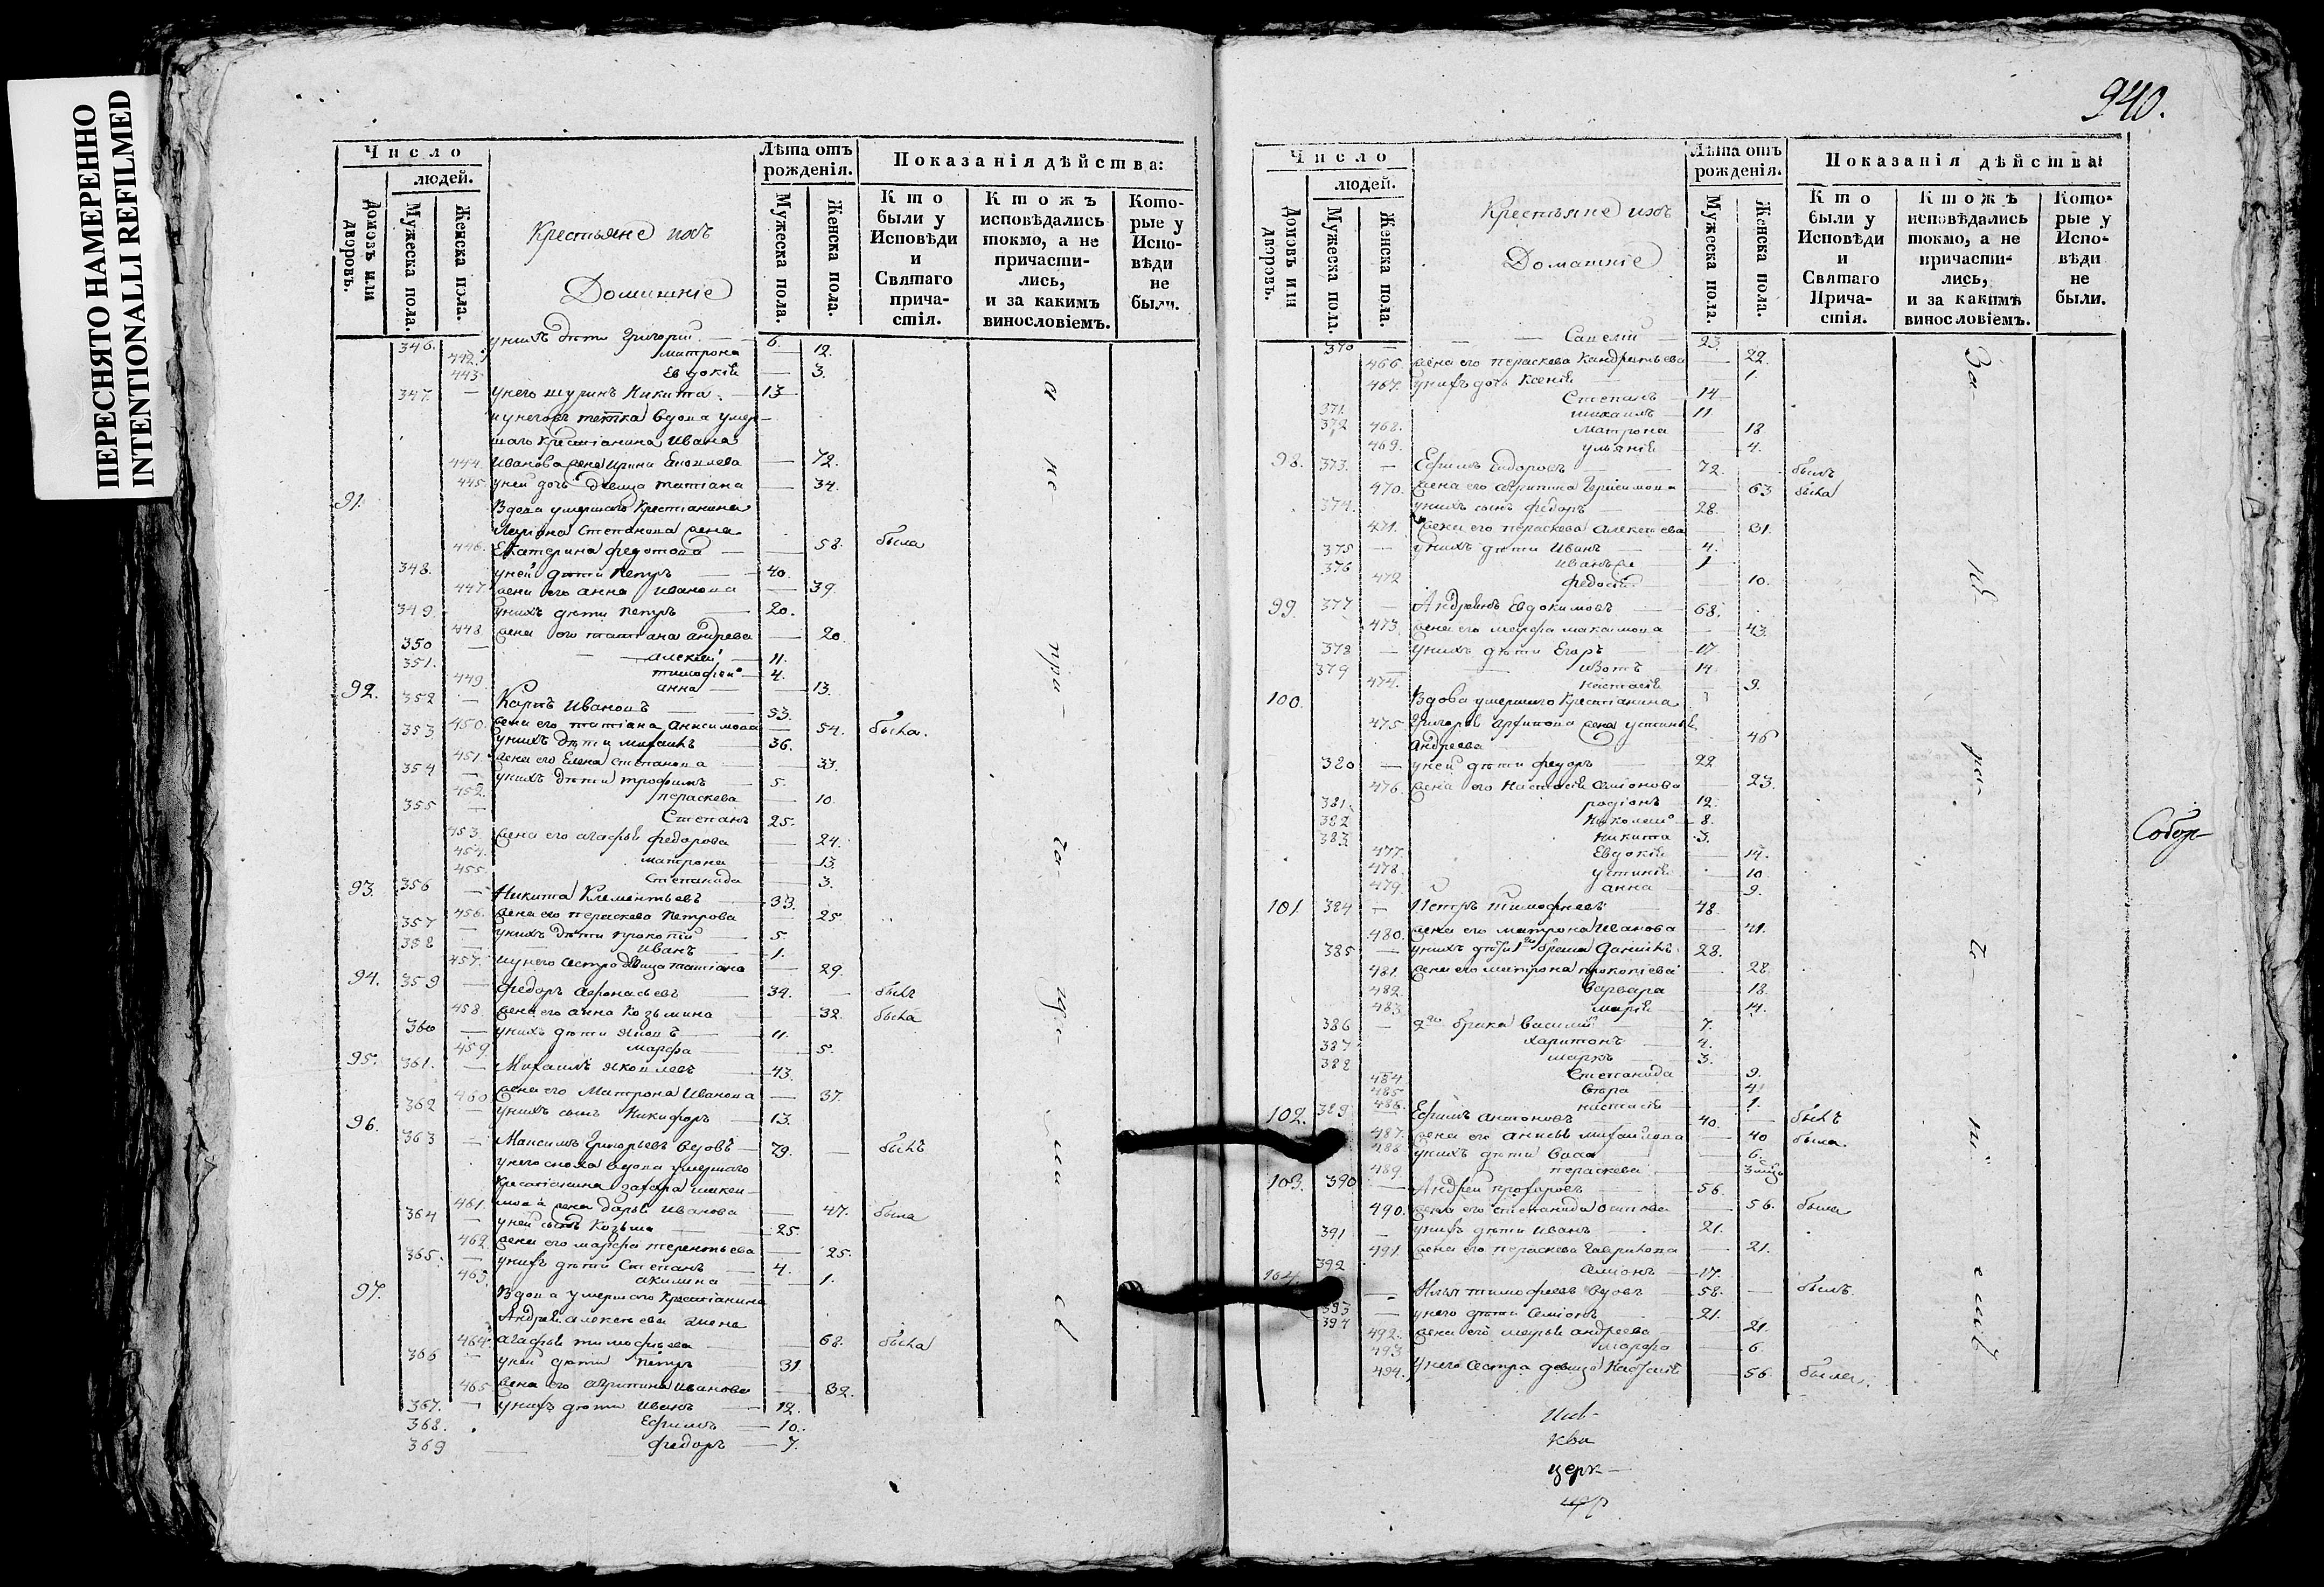 ПЕРЕСНЯТО НАМЕРЕННО
INTENTIONALLI REFILMED
Число
людей.
Домовъ или дворовъ.
Мужеска пола.
Женска пола.
Крестьяне ихъ
Домашніе
Лѣта отъ рожденія.
Мужеска пола.
Женска пола.
Показанія дѣйства:
Кто были у Исповѣди и Святаго причастія.
Ктожъ исповѣдались токмо, а не причастились, и за какимъ винословіемъ.
Которые у Исповѣди не были.
346. унихъ дѣти Григорій 6.
442. матрона 12.
443. Евдокія 3.
347. унего шуринъ Никита 13
вдова умер-
шаго крестіанина Ивана
444. Иванова жена Ирина 72.
445. уней дочь девица татіана 34.
91. Вдова умершаго Крестіанина
Степанова жена
446. Екатерина федотова 58. была
348. уней дѣти петръ 40.
447. жена его анна Иванова 39.
349. унихъ дѣти петръ 20.
448. жена его татіана андреева 20.
350 алексѣй 11.
351. тимофей 4.
449. анна 13.
92. 352 Карпъ Ивановъ 53.
450. жена его татіана анисимова 54. была.
353. унихъ дѣти 36.
451. жена его Елена степанова 33.
354 унихъ дѣти трофимъ 5.
452. пераскева 10.
355 Степанъ 25.
453. жена его агафья федорова 24.
454. матрона 13.
455. степанида 3.
93. 356 Никита Клементьевъ 33.
456. жена его пераскева петрова 25.
357 унихъ дѣти прокопій 5.
358 Иванъ 1.
457. унего сестра девица татіана 29.
94. 359 федоръ афонасьевъ 34. былъ
458. жена его анна Козьмина 32. была
360 унихъ дѣти яковъ 11.
459. марфа 5.
95. 361. Михаилъ яковлевъ 43.
460. жена его Матрона Иванова 37.
362 унихъ сынъ Никифоръ 13.
96. 363 Максимъ Григорьевъ вдовъ 79. былъ
унего сноха вдова умершаго
крестіанина захара
461. жена дарья Иванова 47. была
364 уней сынъ Козьма 25.
462. жена его марфа терентьева 25.
365. унихъ дѣти Степанъ 4.
463. акилина 1.
97. Вдова умершаго Крестіанина
Андрея алексѣева жена
464. агафья тимофѣева 68. была
366 уней дѣти петръ 31.
465. жена его агрипина иванова 32.
367. унихъ дѣти Иванъ 12.
368. Ефимъ 10.
369 федоръ 7.
За не при ча сти ... сь
940.
Число
людей.
Домовъ или дворовъ.
Мужеска пола.
Женска пола.
Крестьяне ихъ
Домашніе
Лѣта отъ рожденія.
Мужеска пола.
Женска пола.
Показанія дѣйства:
Кто были у Исповѣди и Святаго Причастія.
Ктожъ исповѣдались токмо, а не причастились, и за какимъ винословіемъ.
Которые у Исповѣди не были.
370 Савелій 23.
466. жена его пераскева Кандратьева 22.
467. унихъ дочь Ксенія 1.
371. Степанъ 14
372 михаилъ 11
468. матрона 18.
469. ульянія 4.
98. 373. Ефимъ Сидоровъ 72. былъ
470. жена его агрипина Герасимова 63 была
374. унихъ сынъ федоръ 28.
471. жена его пераскева алексѣева 31.
375 унихъ дѣти Иванъ 4.
376 1
472 федосія 10.
99. 377 Андреянъ Евдокимовъ 68.
473. жена его марфа максимова 43.
378 унихъ дѣти Егоръ 17
379 изотъ 14.
474. настасія 9.
100. Вдова умершаго Крестіанина
475 Григорья архипова жена устинія
андреева 46
380 уней дѣти федоръ 22
476. жена его настасія семіонова 23.
381. родіонъ 12.
382 Николай 8.
383 Никита 3.
477. Евдокія 14.
478. устинія 10
479. анна 9.
101. 384 Петръ тимофѣевъ 48.
480. жена его матрона Иванова 41.
385 28.
481. жена его матрона прокопіева 28.
482. варвара 18.
483. марія 14.
386 василій 7.
387 харитонъ 4.
388 маркъ 3.
484 Степанида 9.
485 вѣра 4.
486. настасія 1.
102. 389 Ефимъ антоновъ 40. былъ
487. жена его михаилова 40 была.
488 унихъ дѣти васса 6.
489. пераскева
103. 390 Андрей прохоровъ 56.
490. жена его степанида 56. была
391 унихъ дѣти иванъ 21.
491. жена его пераскева гаврилова 21.
392 семіонъ 17.
104. Илья тимофеевъ вдовъ 58. былъ.
393 унего дѣти семіонъ 21.
394
492. жена его марья андреева 21.
493 марфа 6.
494. Унего сестра девица Настасія 56. была.
За не ра че ні емъ
Собор-
церк-